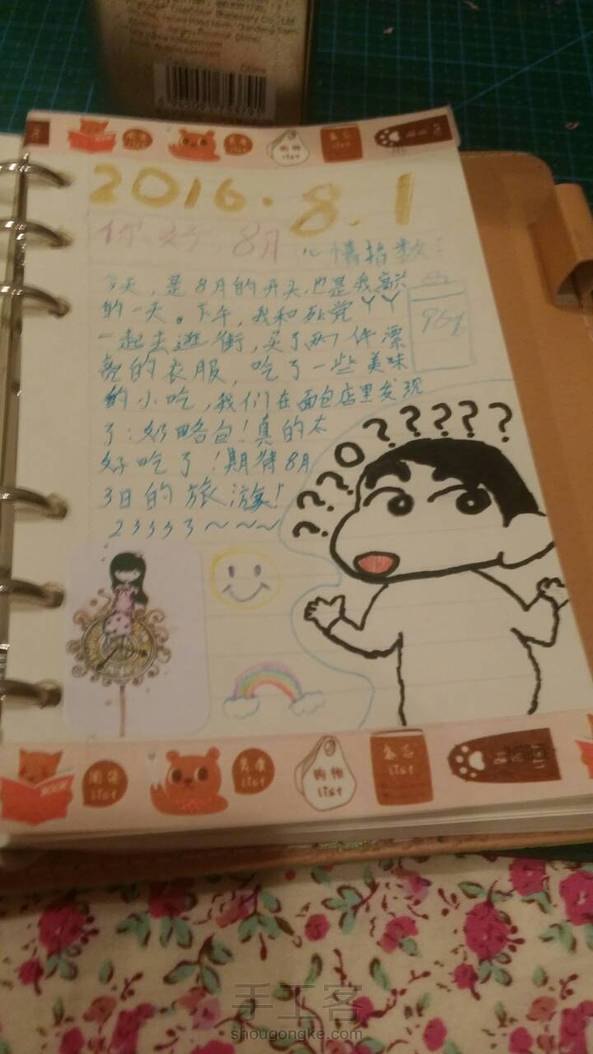 2016.8.1
你好,8月
心情指数:
今天,是8月的开头,也是我高兴
的一天。下午,我和死党YY
一起去逛街,买了两件漂
亮的衣服,吃了一些美味
的小吃,我们在面包店里发现
了:奶酪包!真的太
好吃了!期待8月
3日的旅游!
23333~~~~
96%
??O?????
??
?
BOOK
购物
List
美食
List
购物
List
手工客
shougongke.com